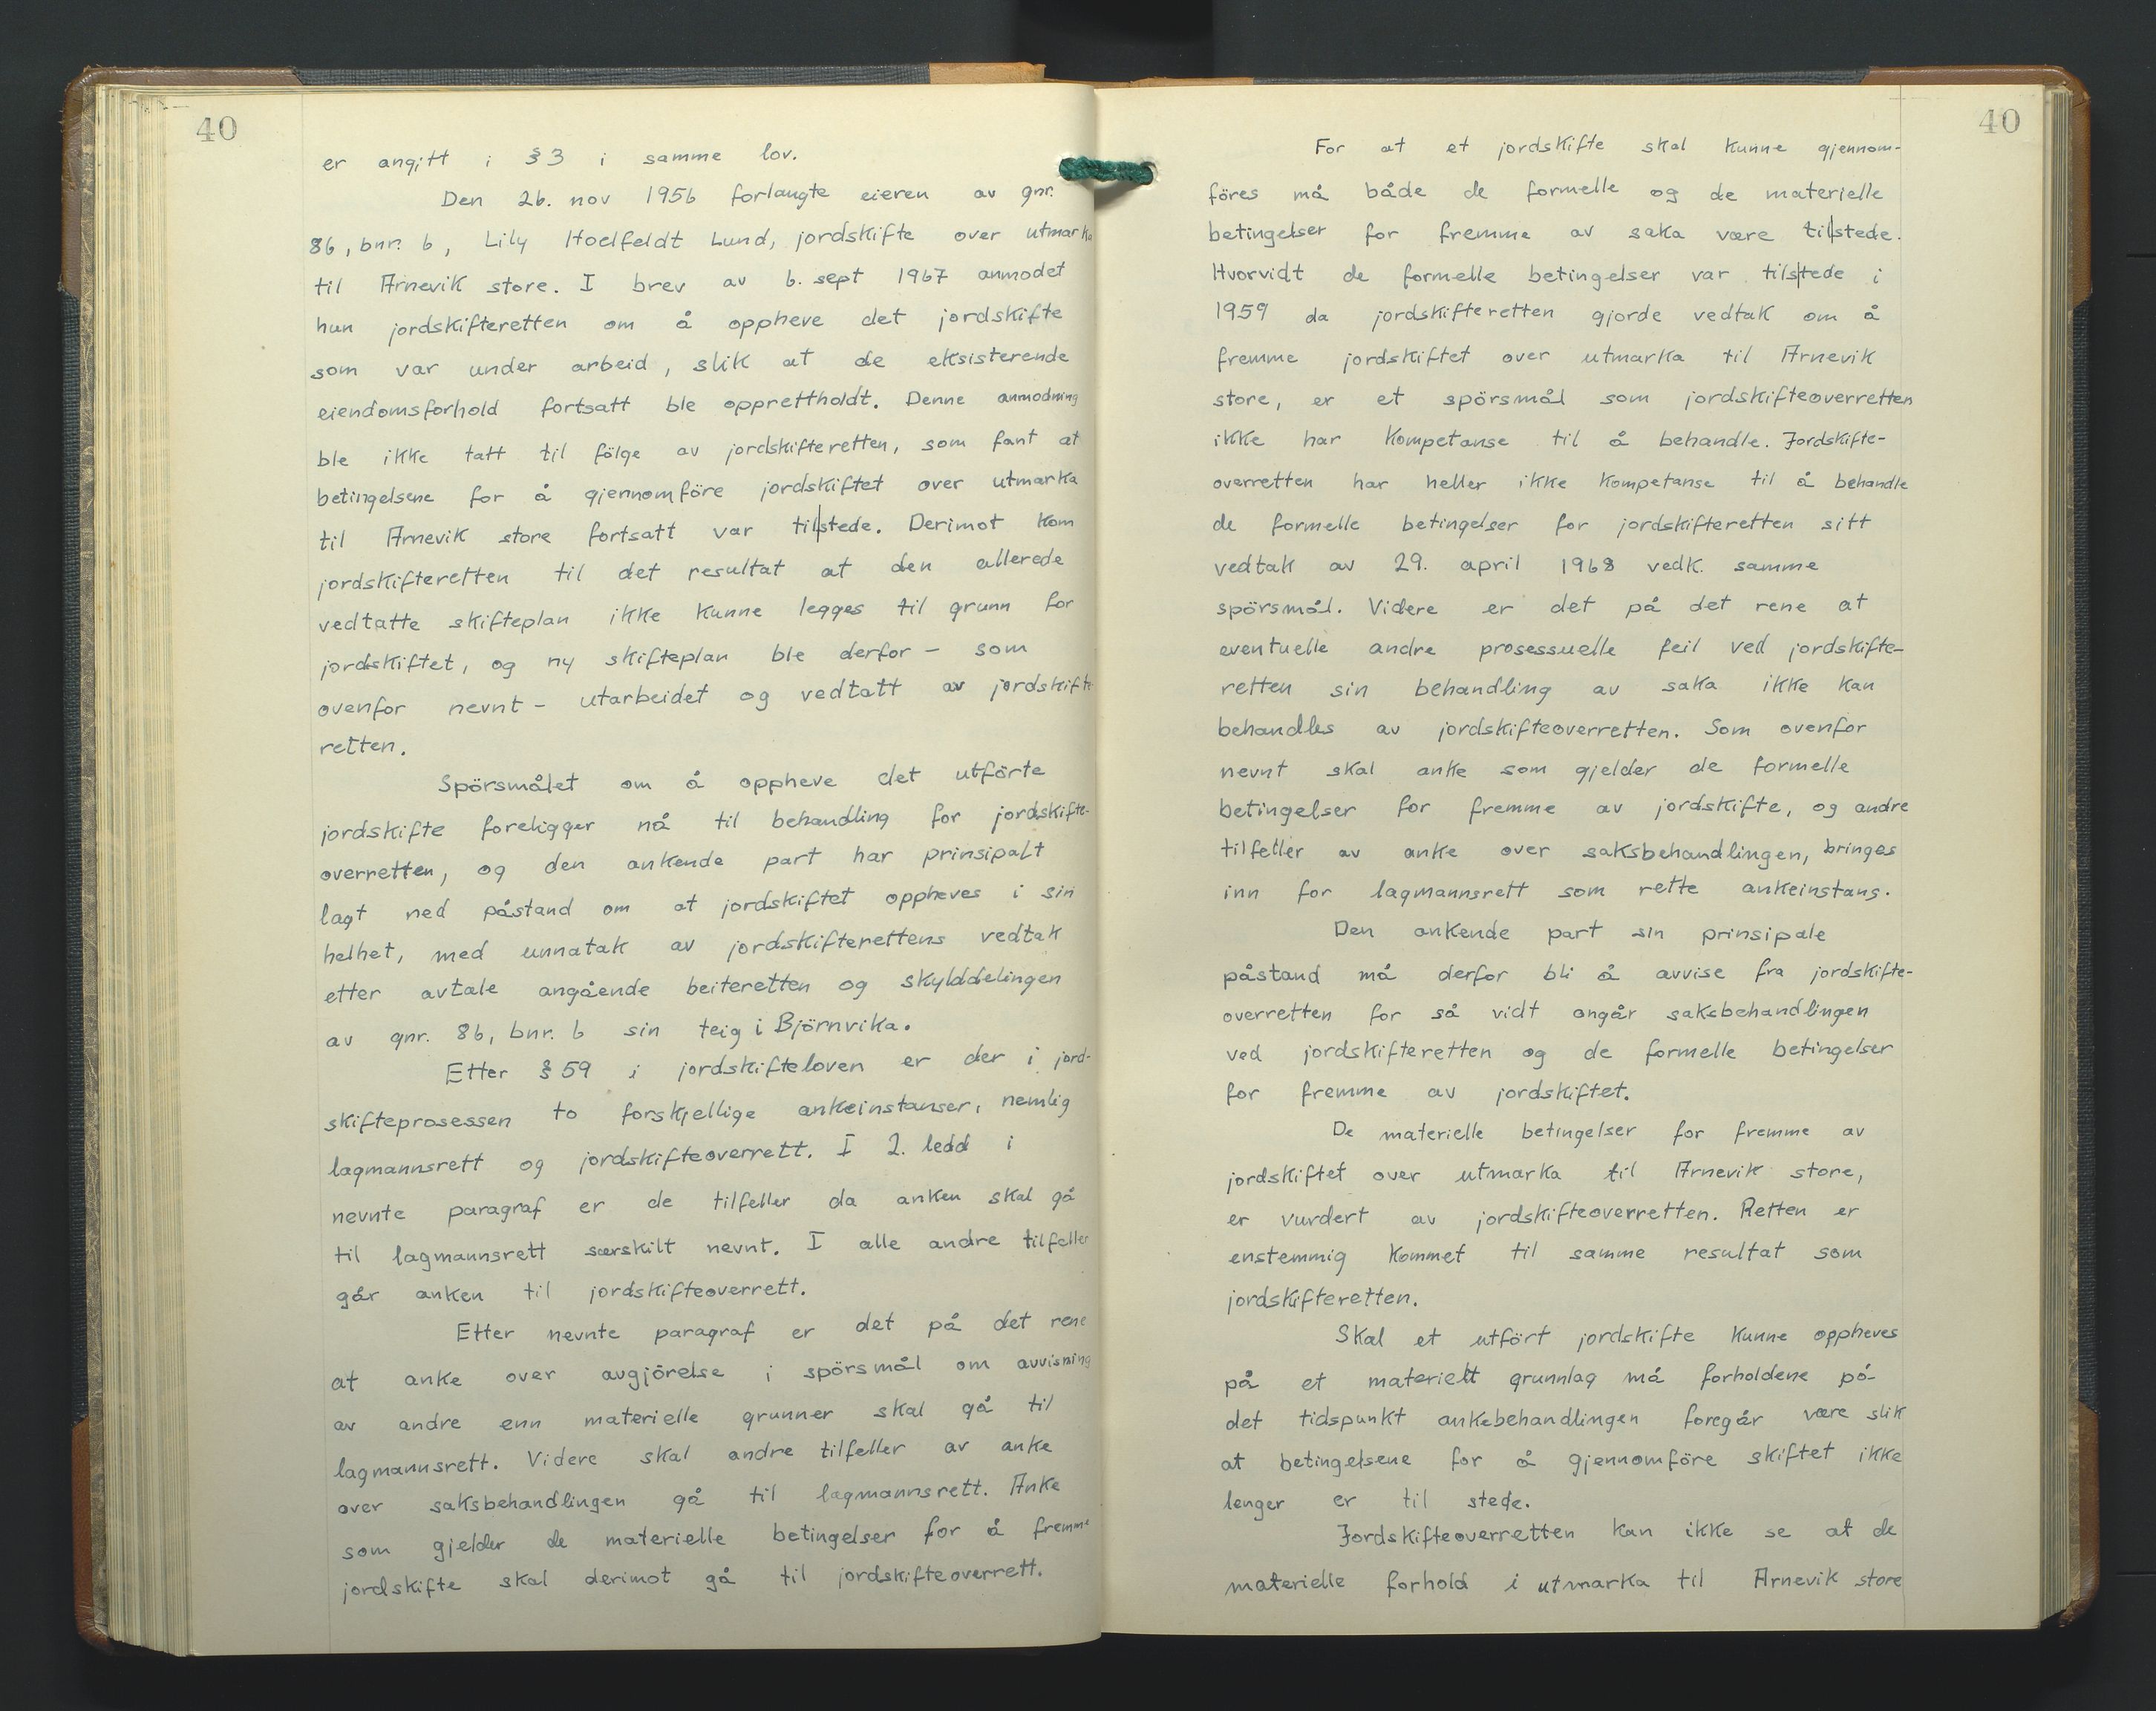 40
er angitt i § 3 i samme lov.
Den 26. nov 1956 forlangte eieren av gnr.
86, bnr. 6, Lily Hoelfeldt Lund, jordskifte over utmarka
til Arnevik store. I brev av 6. sept 1967 anmodet
hun jordskifteretten om å oppheve det jordskifte
som var under arbeid, slik at de eksisterende
eiendomsforhold fortsatt ble opprettholdt. Denne anmodning
ble ikke tatt til fölge av jordskifteretten, som fant at
betingelsene for å gjennomföre jordskiftet over utmarka
til Arnevik store fortsatt var til|stede. Derimot kom
jordskifteretten til det resultat at den allerede
vedtatte skifteplan ikke kunne legges til grunn for
jordskiftet, og ny skifteplan ble derfor - som
ovenfor nevnt - utarbeidet og vedtatt av jordskifte
retten.
Spörsmålet om å oppheve det utförte
jordskifte foreligger nå til behandling for jordskifte-
overretten, og den ankende part har prinsipalt
lagt ned påstand om at jordskiftet oppheves i sin
helhet, med unnatak av jordskifterettens vedtak
etter avtale angående beiteretten og skylddelingen
av gnr. 86, bnr. 6 sin teig i Björnvika.
Etter § 59 i jordskifteloven er der i jord-
skifteprosessen to forskjellige ankeinstanser, nemlig
lagmannsrett og jordskifteoverrett. I 2. ledd i
nevnte paragraf er de tilfeller da anken skal gå
til lagmannsrett særskilt nevnt. I alle andre tilfeller
går anken til jordskifteoverrett.
Etter nevnte paragraf er det på det rene
at anke over avgjörelse i spörsmål om avvisning
av andre enn materielle grunner skal gå til
lagmannsrett. Videre skal andre tilfeller av anke
over saksbehandlingen gå til lagmannsrett. Anke
som gjelder de materielle betingelser for å fremme
jordskifte skal derimot gå til jordskifteoverrett.
40
For at et jordskifte skal kunne gjennom-
föres må både de formelle og de materielle
betingelser for fremme av saka være til|stede.
Hvorvidt de formelle betingelser var til|stede i
1959 da jordskifteretten gjorde vedtak om å
fremme jordskiftet over utmarka til Arnevik
store, er et spörsmål som jordskifteoverretten
ikke har kompetanse til å behandle. Jordskifte-
overretten har heller ikke kompetanse til å behandle
de formelle betingelser for jordskifteretten sitt
vedtak av 29. april 1968 vedk. samme
spörsmål. Videre er det på det rene at
eventuelle andre prosessuelle feil ved jordskifte-
retten sin behandling av saka ikke kan
behandles av jordskifteoverretten. Som ovenfor
nevnt skal anke som gjelder de formelle
betingelser for fremme av jordskifte, og andre
tilfeller av anke over saksbehandlingen, bringes
inn for lagmannsrett som rette ankeinstans.
Den ankende part sin prinsipale
påstand må derfor bli å avvise fra jordskifte-
overretten for så vidt angår saksbehandlingen
ved jordskifteretten og de formelle betingelser
for fremme av jordskiftet.
De materielle betingelser for fremme av
jordskiftet over utmarka til Arnevik store,
er vurdert av jordskifteoverretten. Retten er
enstemmig kommet til samme resultat som
jordskifteretten.
Skal et utfört jordskifte kunne oppheves
på et materielt grunnlag må forholdene på
det tidspunkt ankebehandlingen foregår være slik
at betingelsene for å gjennomföre skiftet ikke
lenger er til stede.
Jordskifteoverretten kan ikke se at de
materielle forhold i utmarka til Arnevik store